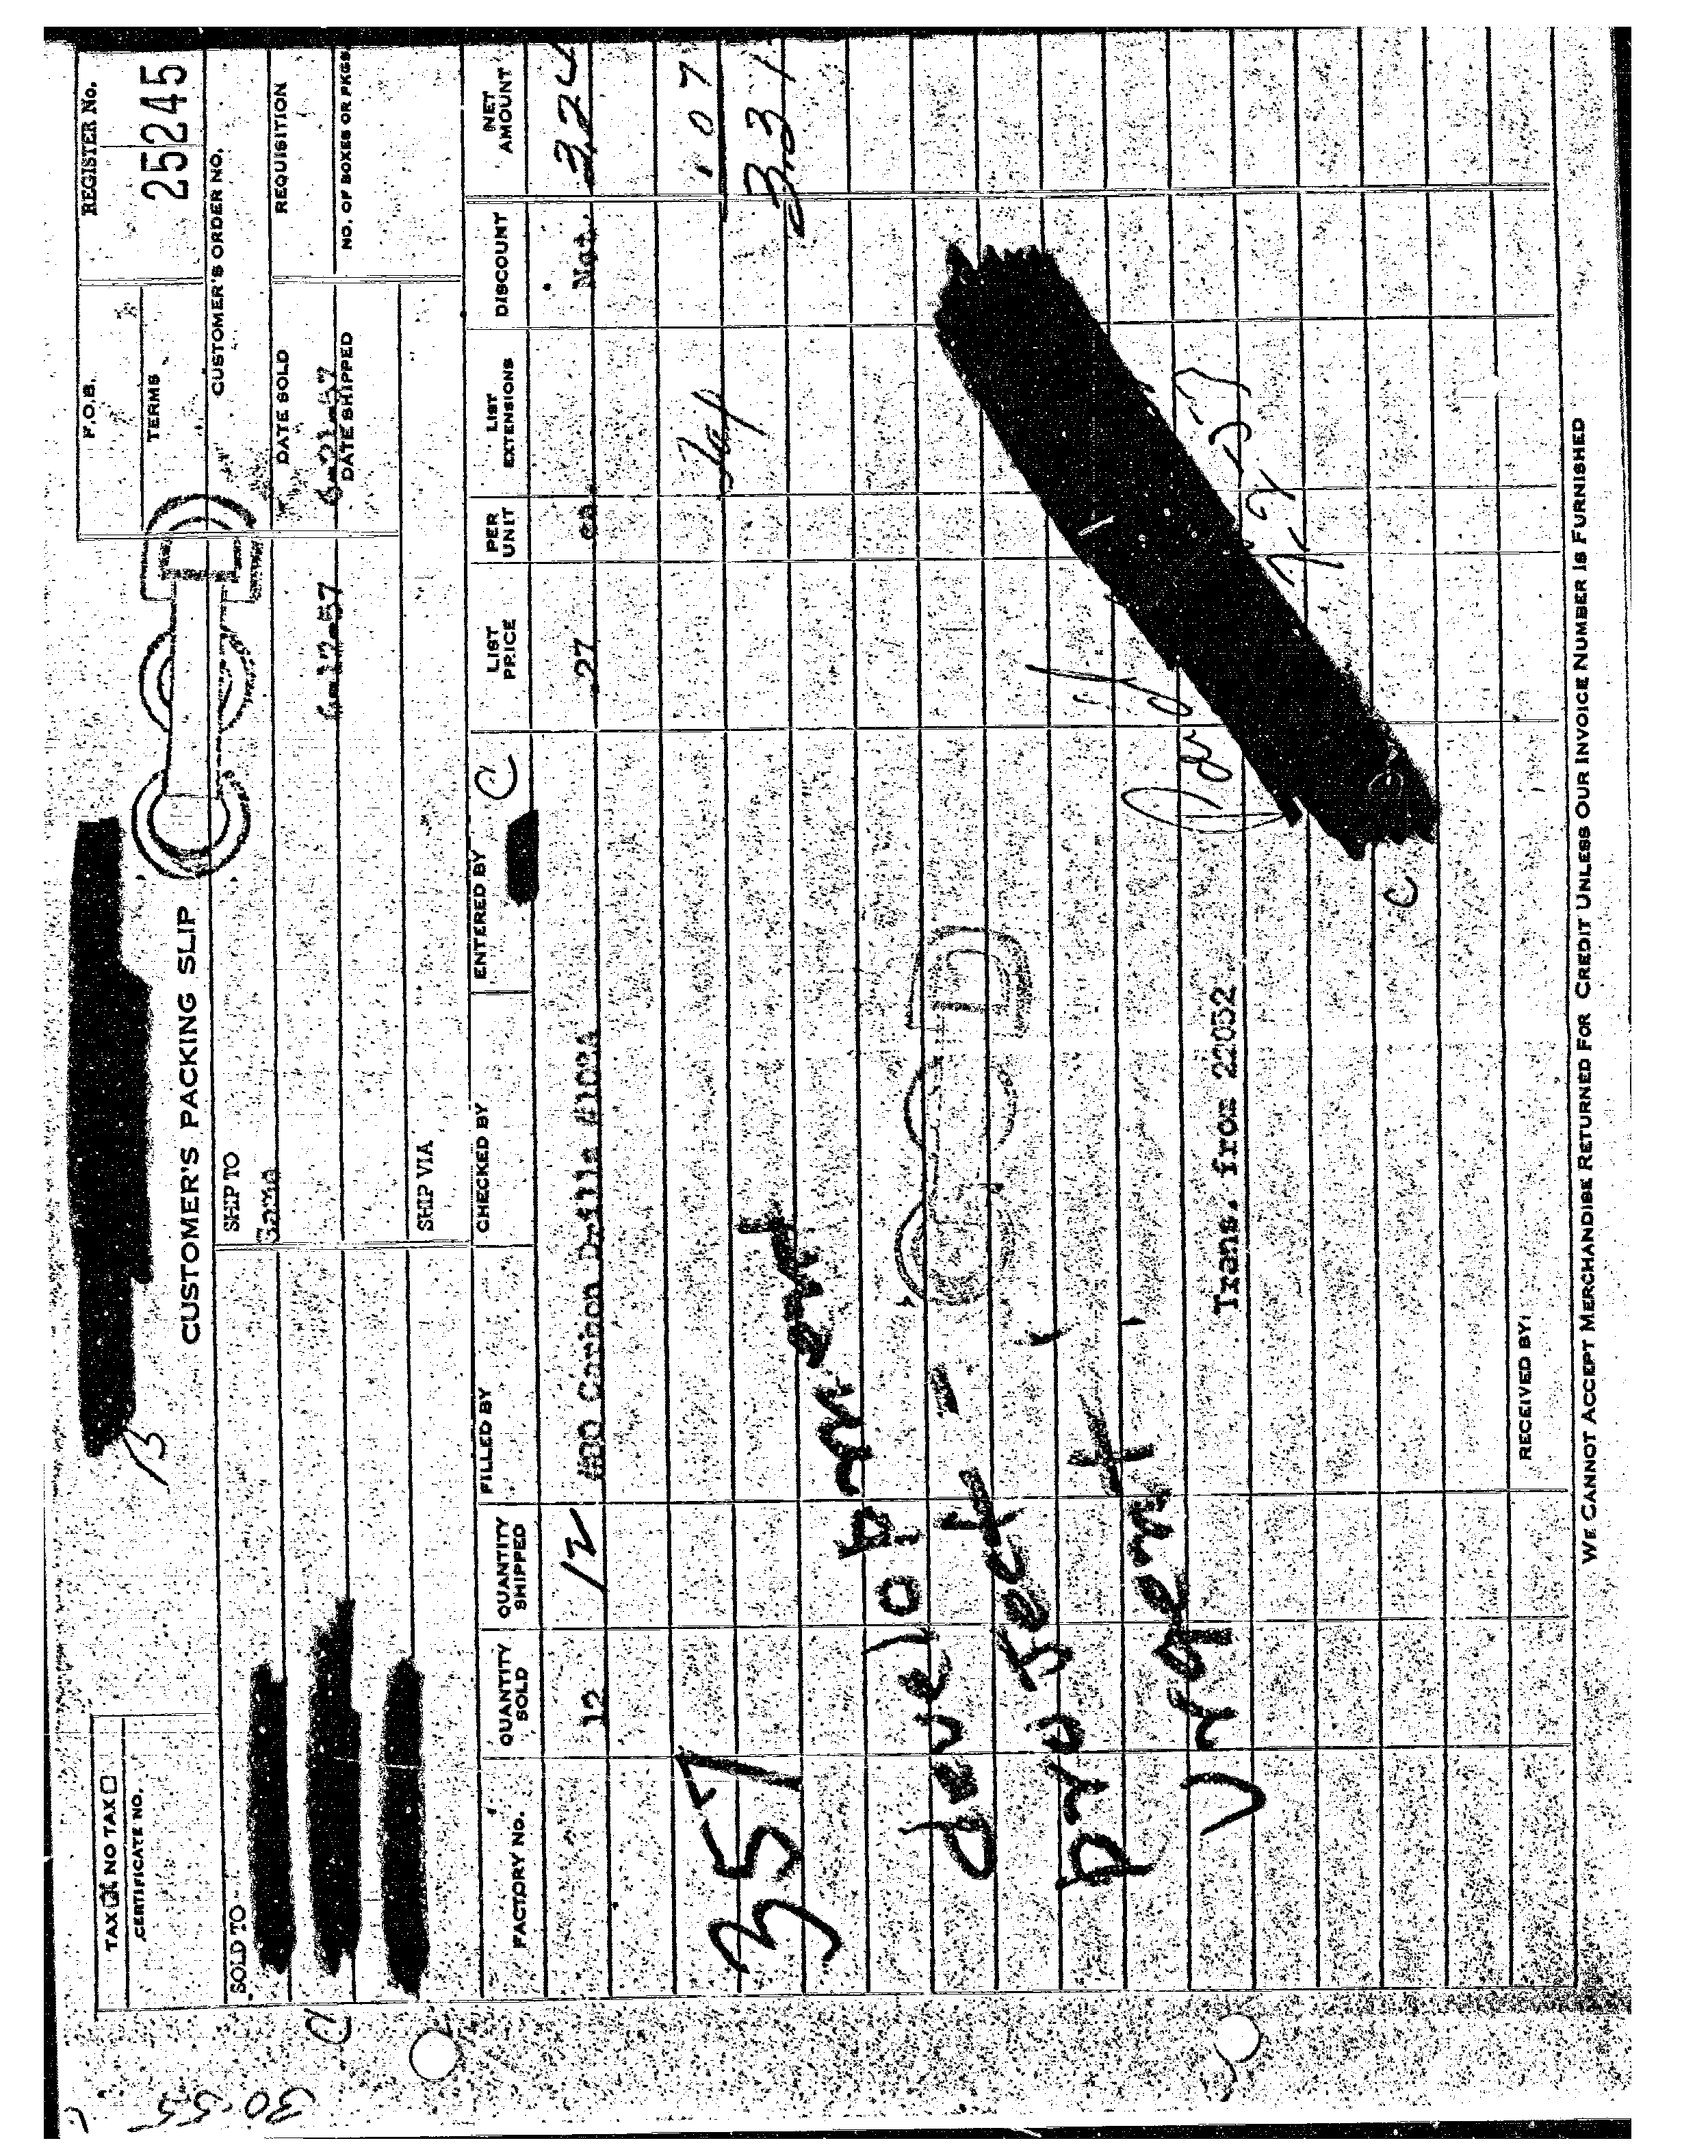 TAX ☒ NO TAX ☐
CERTIFICATE NO.
CUSTOMER'S PACKING SLIP
F.O.B.
TERMS
REGISTER No.
25245
CUSTOMER'S ORDER NO.
SOLD TO
SHIP TO
Same
DATE SOLD
REQUISITION
6-17-57
6-21-57
DATE SHIPPED
NO. OF BOXES OR PKGS
SHIP VIA
FACTORY NO.
QUANTITY SOLD
QUANTITY SHIPPED
FILLED BY
CHECKED BY
ENTERED BY
C
LIST PRICE
PER UNIT
LIST EXTENSIONS
DISCOUNT
NET AMOUNT
12 12 .27 ea. Net. 3.24
357 Tax .07
3.31
development
project -
Urgent
Paid
7-2-57
Trans. from 22052
C
RECEIVED BY:
WE CANNOT ACCEPT MERCHANDISE RETURNED FOR CREDIT UNLESS OUR INVOICE NUMBER IS FURNISHED
30-55